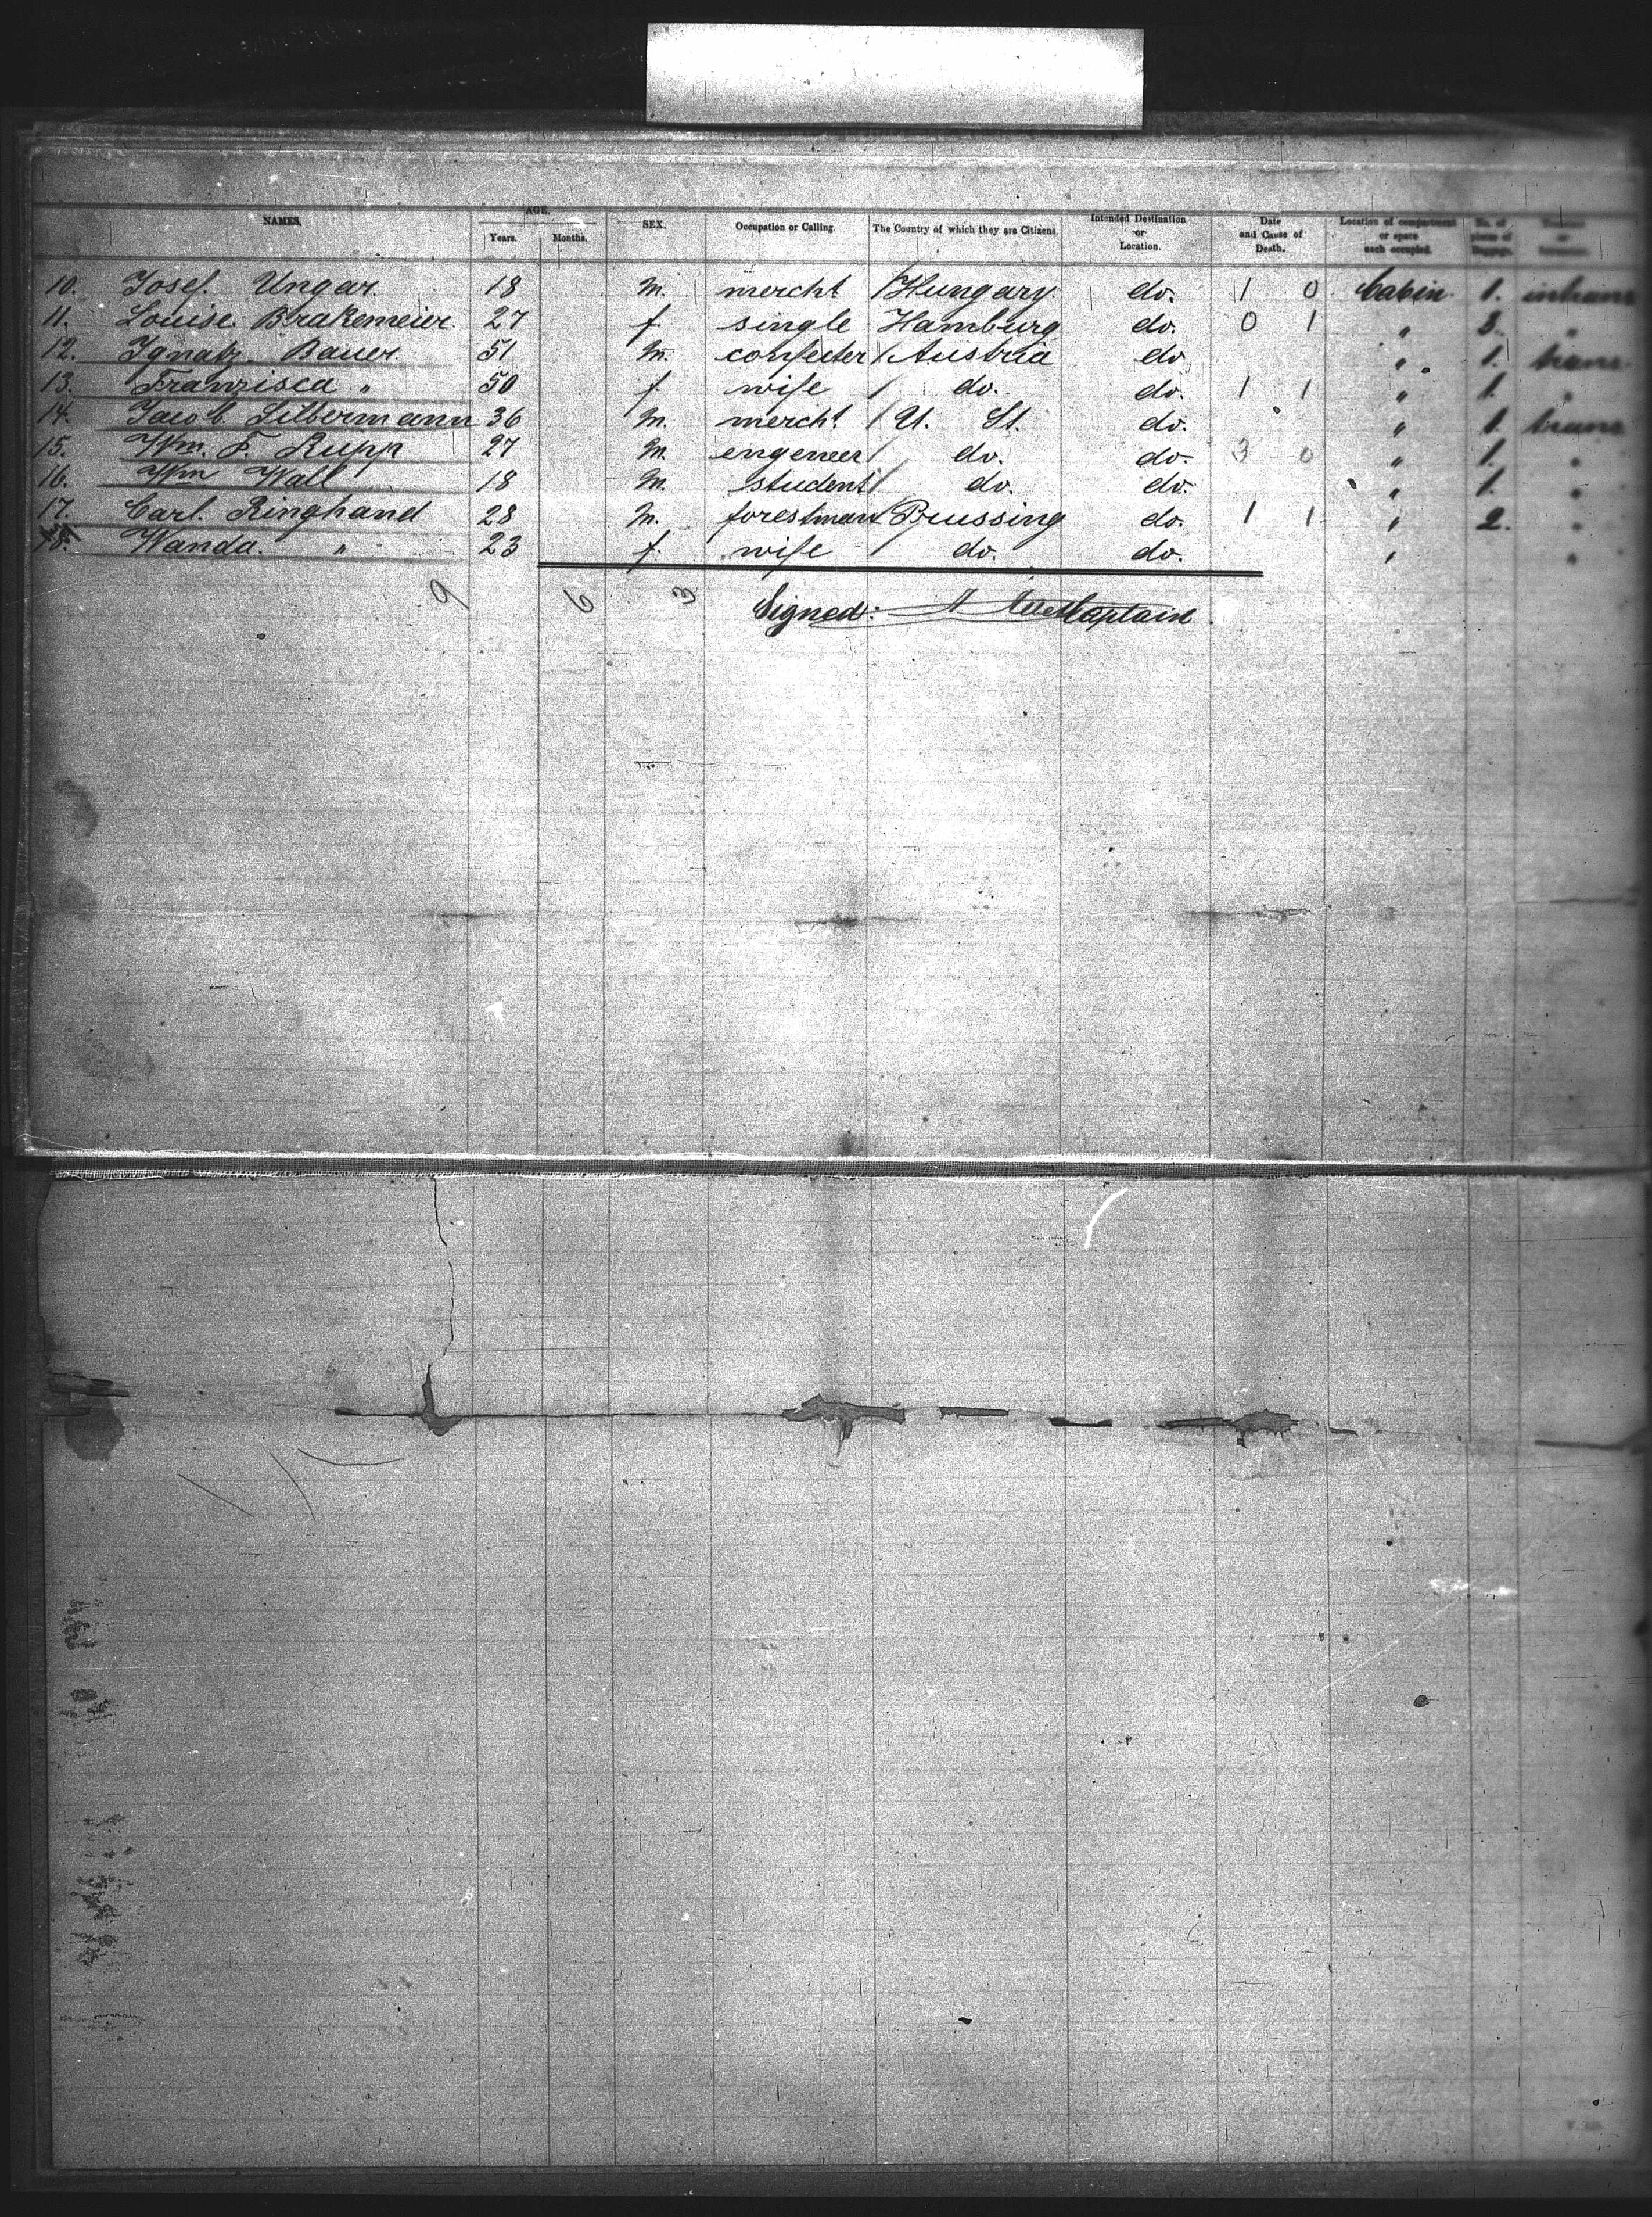 NAMES. AGE. Years. Months. SEX. Occupation or Calling. The Country of which they are Citizens. Intended Destination or Location. Date and Cause of Death. Location of compartment or space each occupied. No. of pieces of Baggage.
10. Josef. Ungar. 18 m. mercht / Hungary do. 1 0 Cabin 1. intrans
11. Louise Brakemeier. 27 f. single Hamburg do. 0 1 " 3. "
12. Ignatz Bauer 51 m. confecter / Austria do " 1. trans
13. Franzisca " 50 f. wife / do. do. 1 1 " 1. "
14. Jacob Silbermann 36 m. mercht / U. St. do. " 1. trans
15. Wm. F. Rupp 27 m. engeneer / do. do. 3 0 " 1. "
16. Wm Wall 18 m. student / do. do. " 1. "
17. Carl. Ringhand 28 m. forestman / Prussing do. 1 1 " 2. "
18. Wanda. " 23 f. wife / do. do. " "
9 6 3 Signed: Captain.